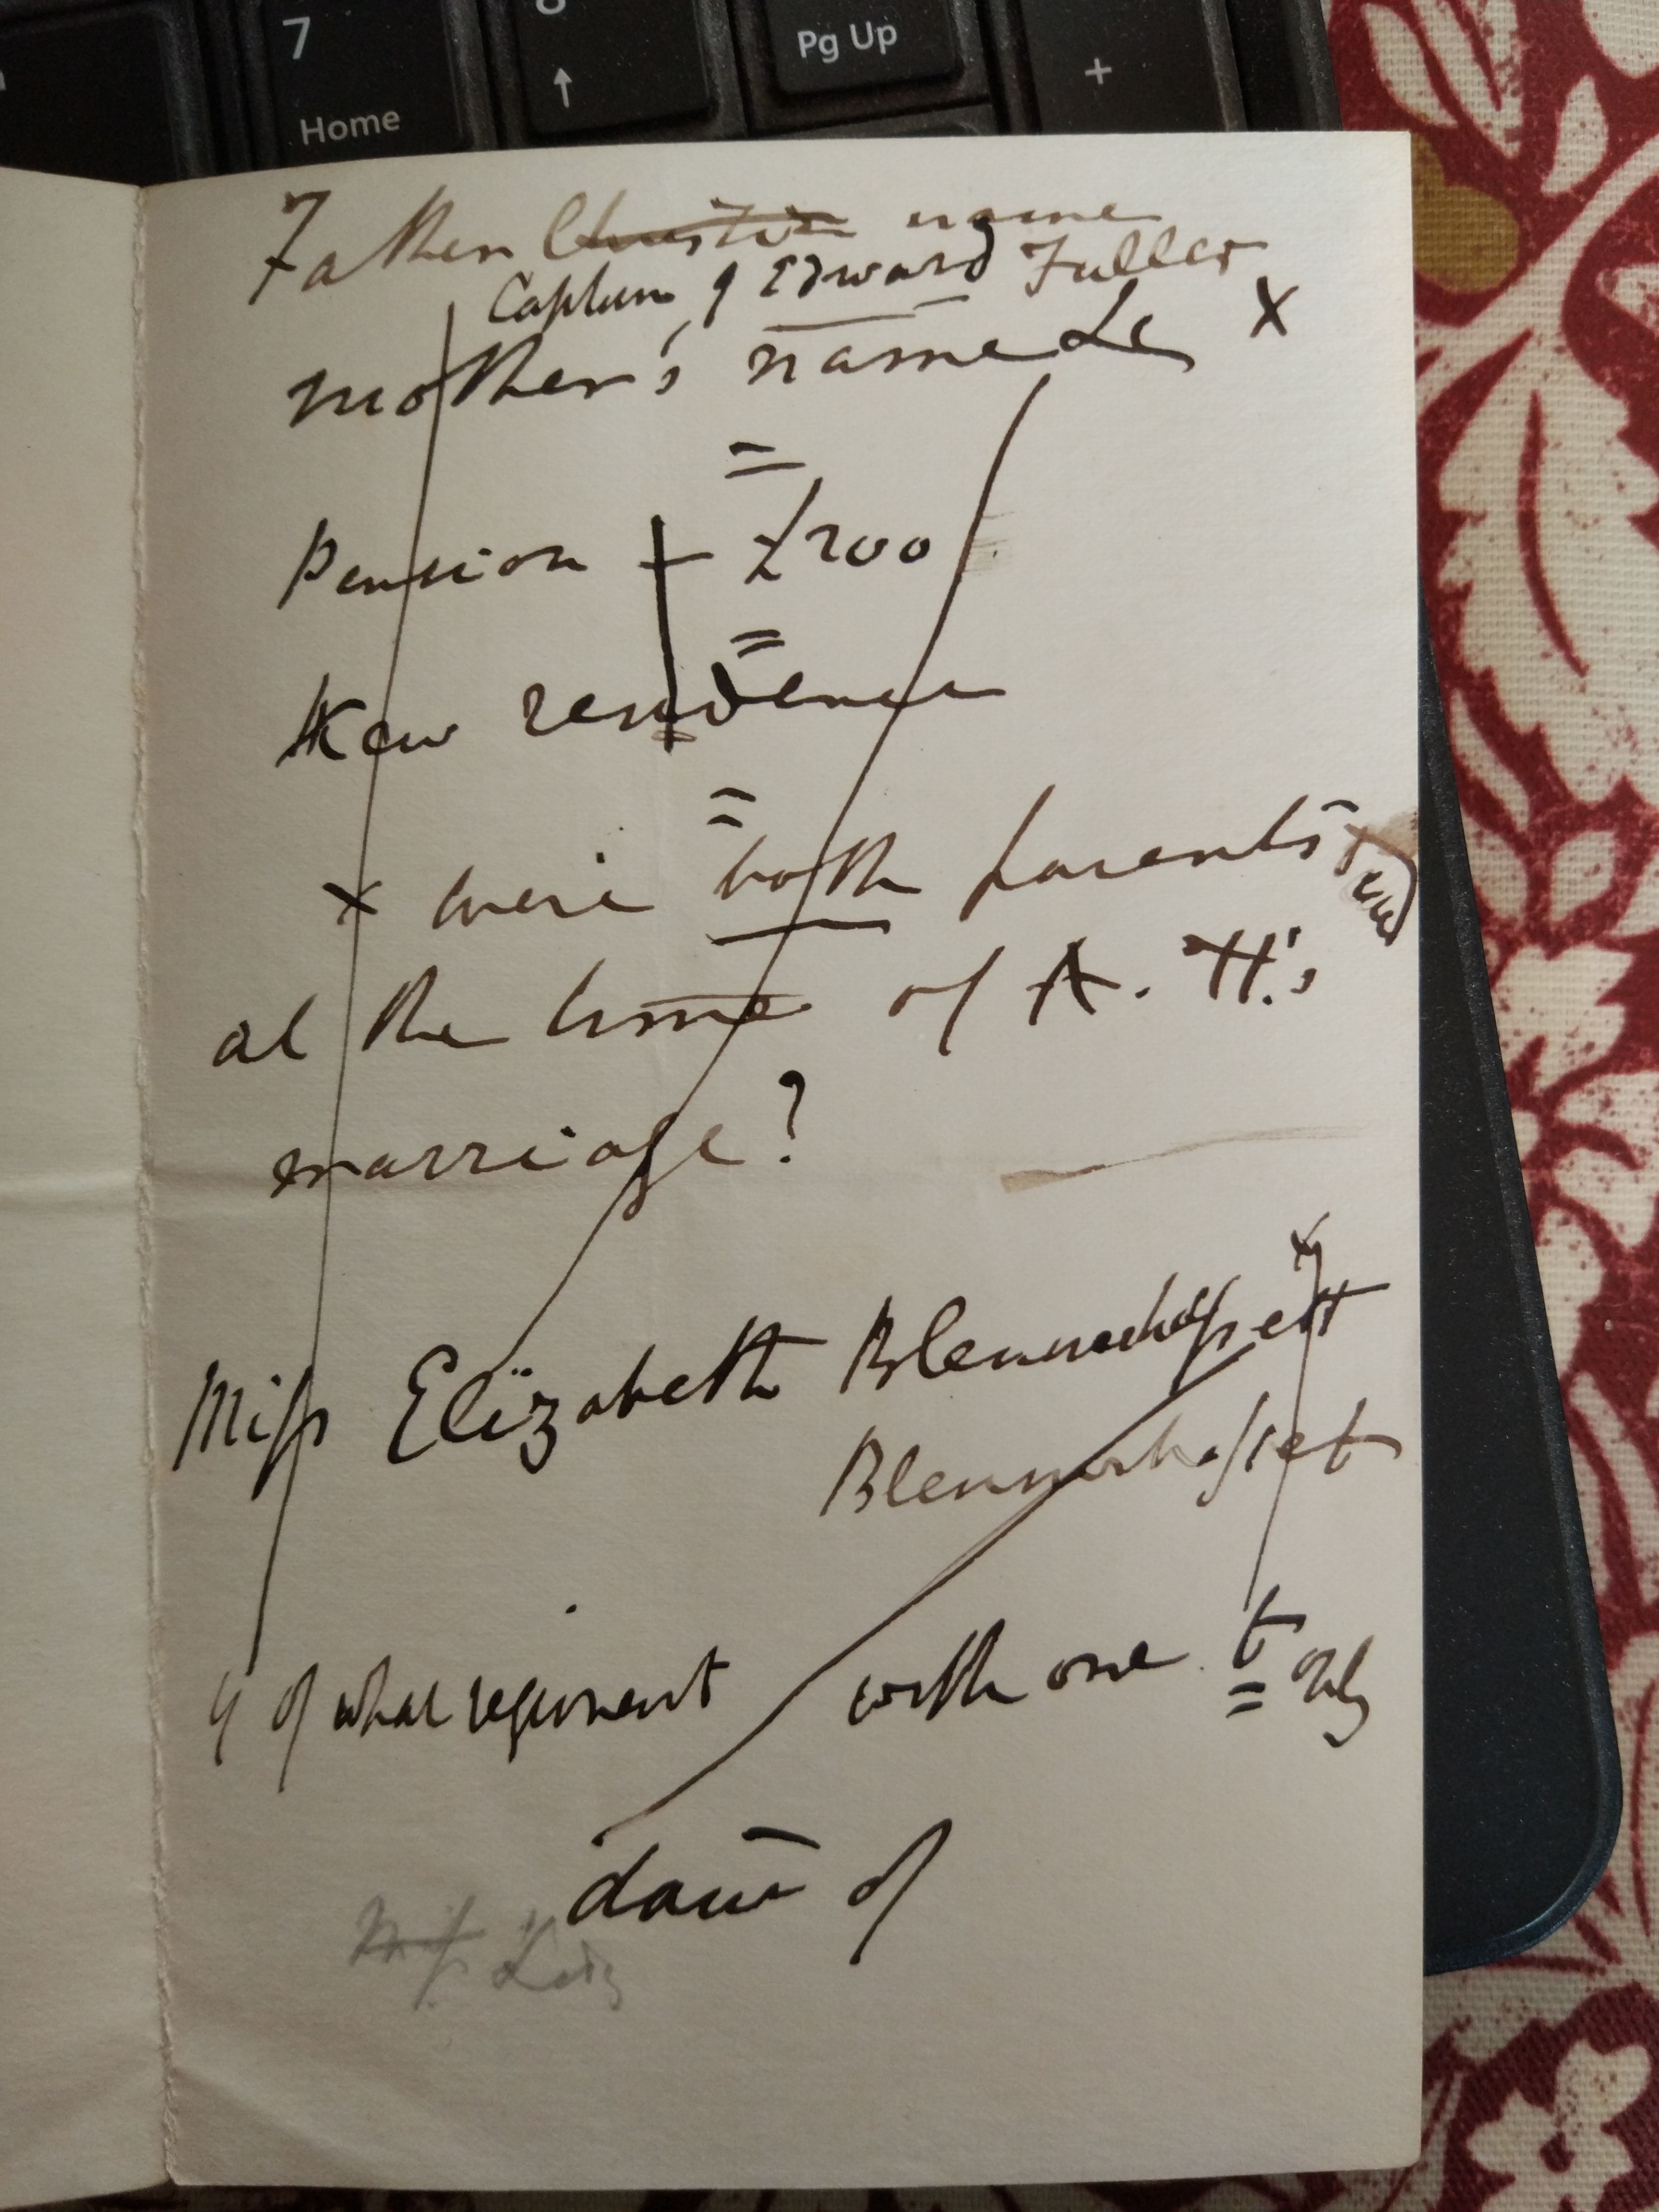 7
Home
↑
Pg Up
+
Father Christian name
Captain Edward Fuller
mother's name Le x
=
Pension + £200
=
Kew residence
=
x were both parents
at the time of A. H.'s
marriage?
Miss Elizabeth Blennerhassett
Blennerhasset
of what regiment with one t only
daur of
Miss Lady